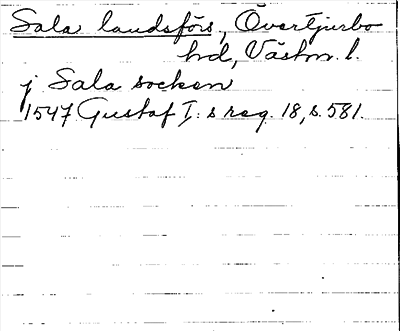 Sala landsförs, Övertjurbo
hd, Västm. l.
j Sala socken
1547 Gustaf I:s reg. 18, s. 581.